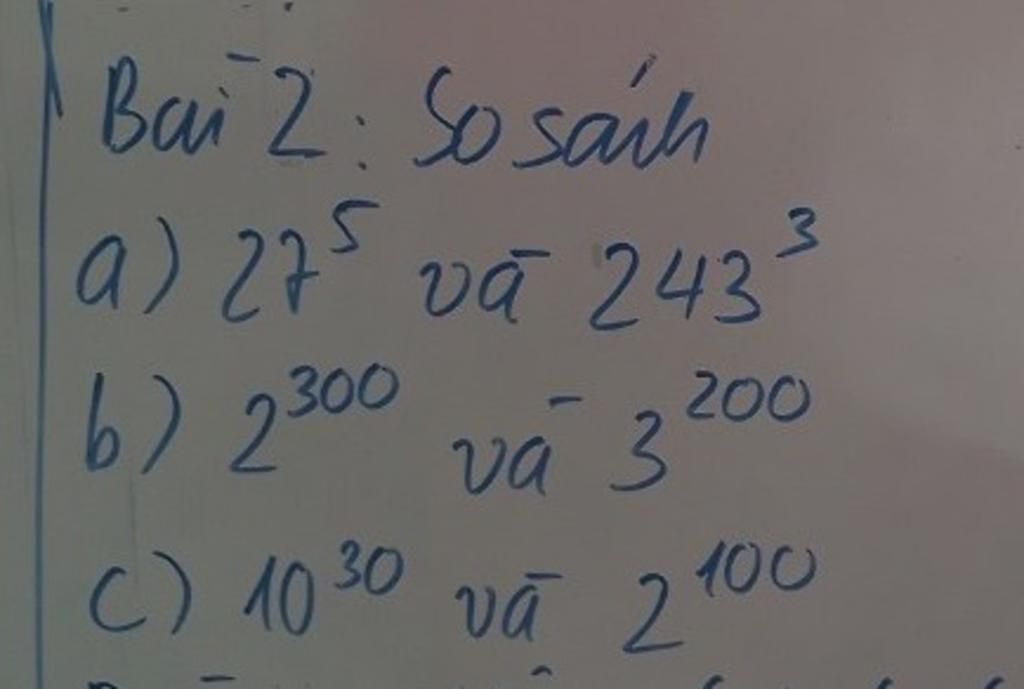 Bài 2: So sánh
a) 27⁵ và 243³
b) 2³⁰⁰ và 3²⁰⁰
c) 10³⁰ và 2¹⁰⁰